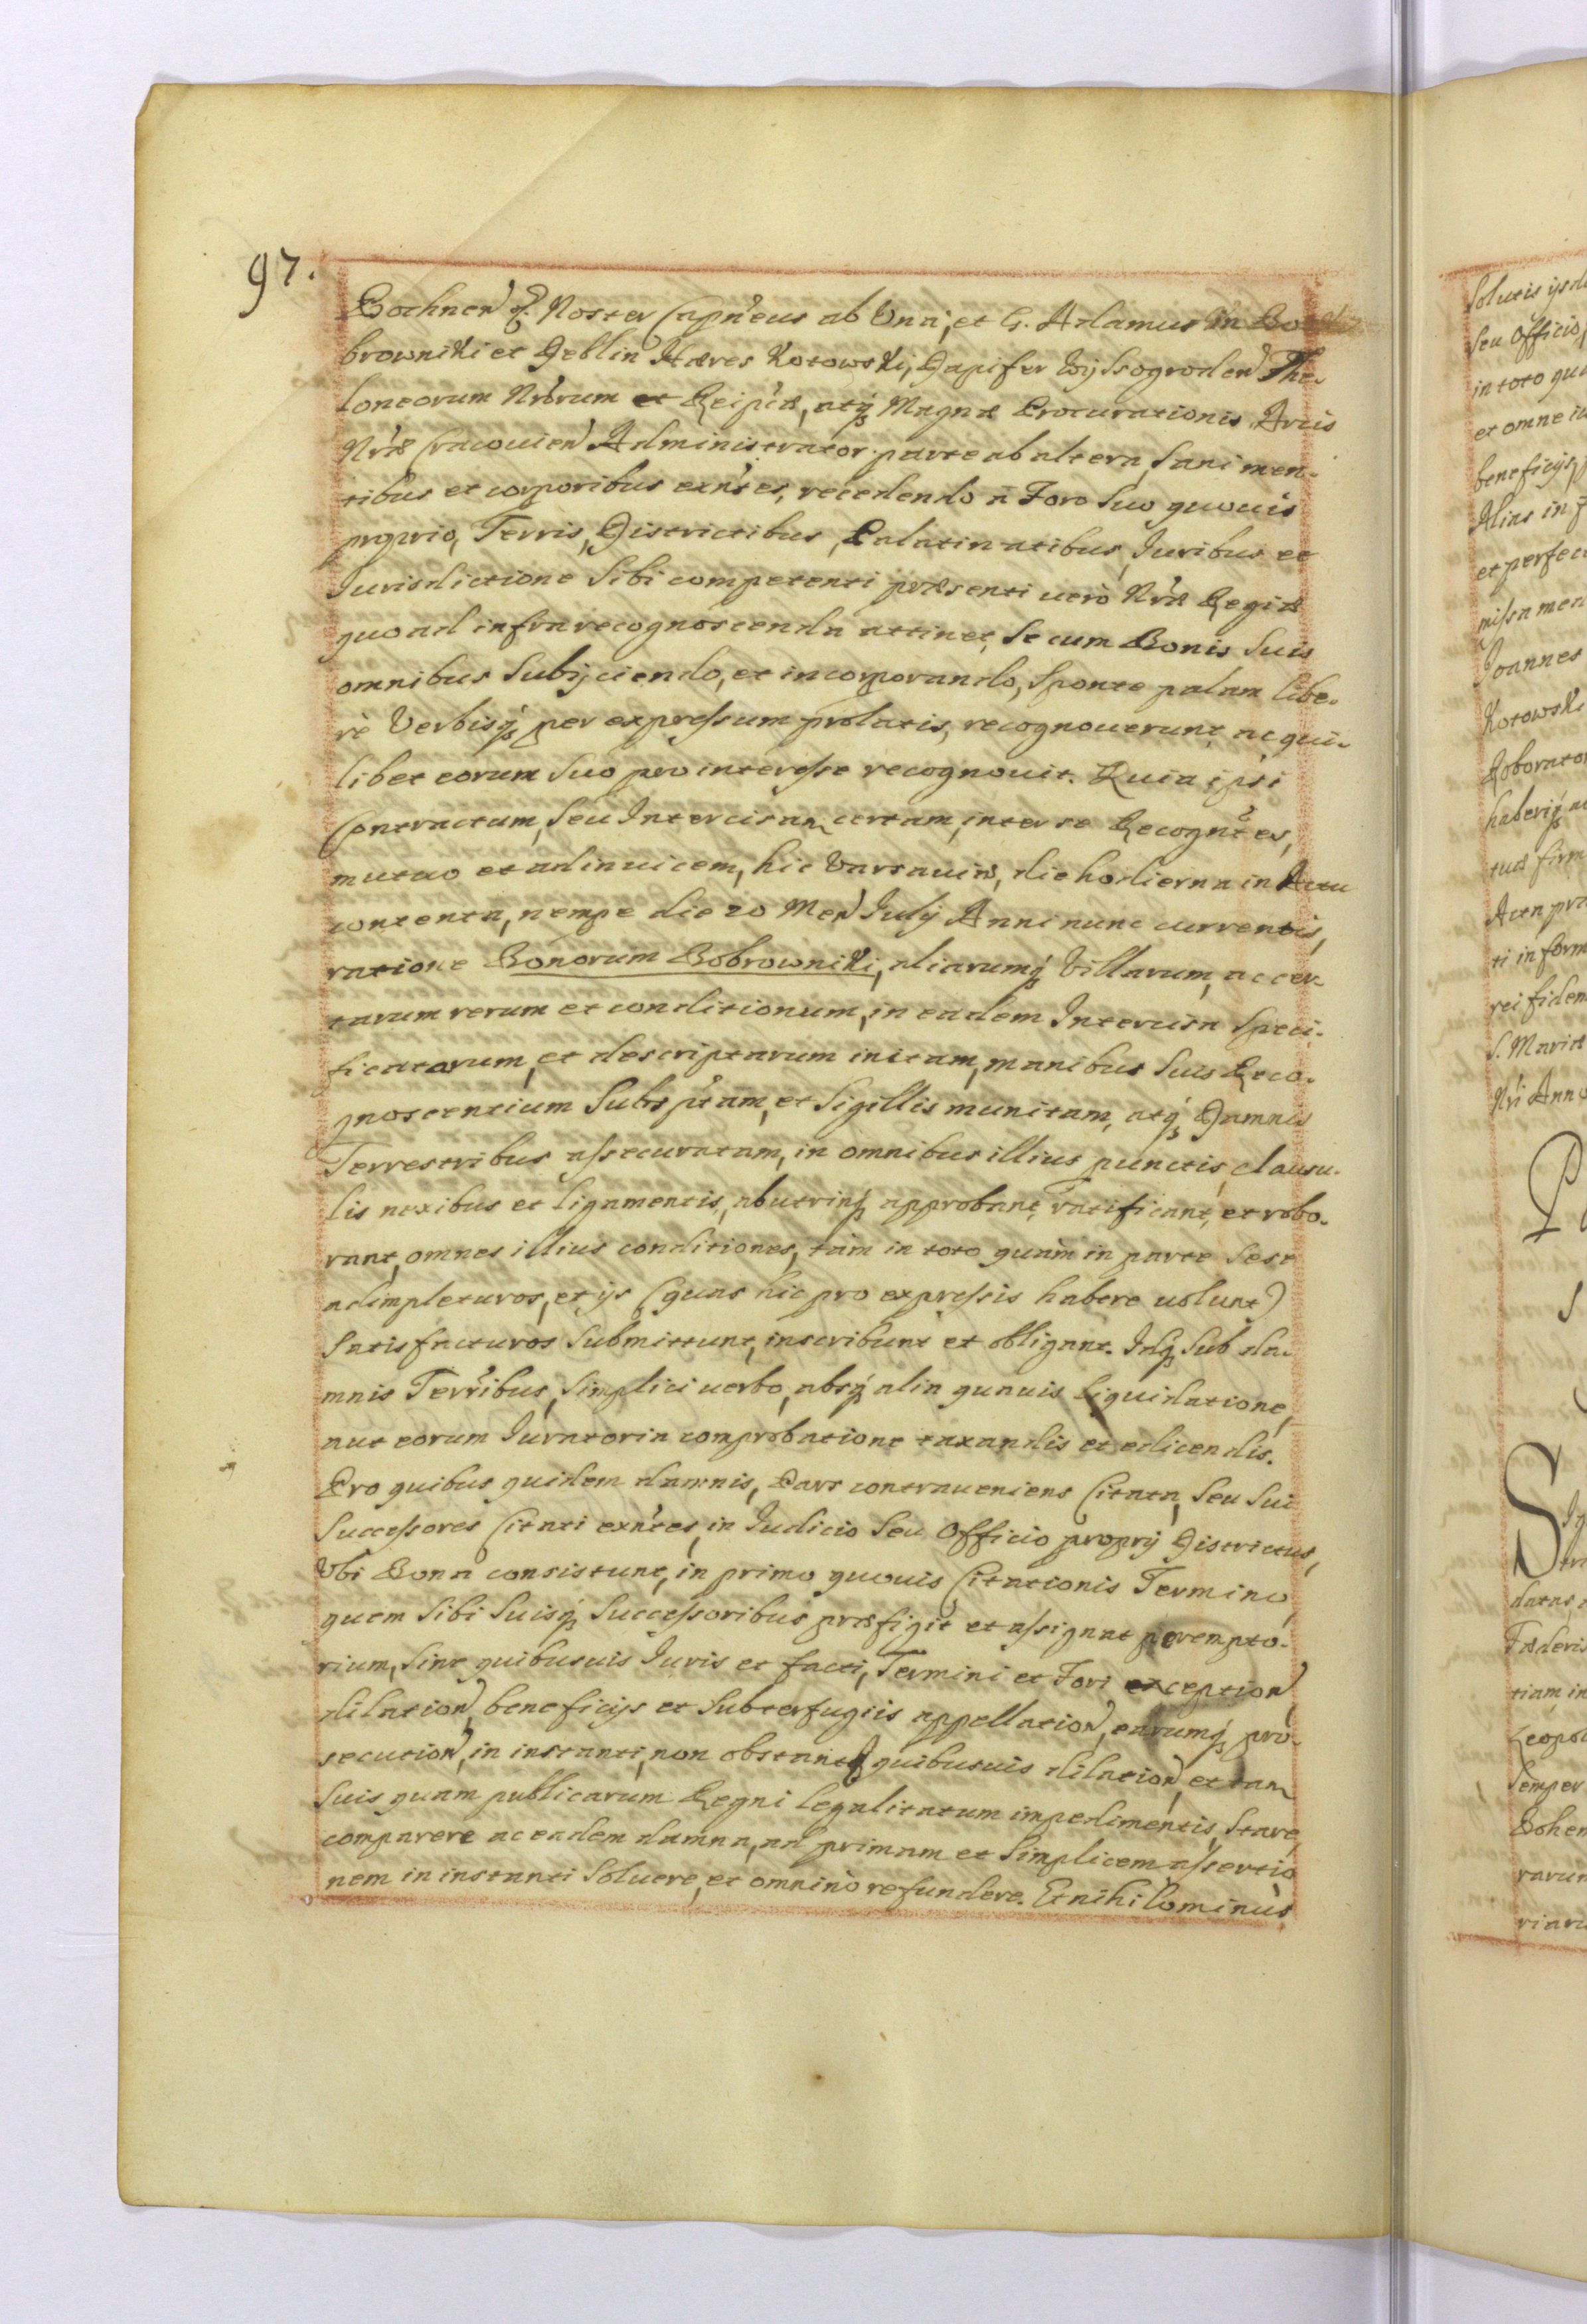 97.
Bochnen̄ q̃. Noster Capn̄eus ab Una, et G. Adamus in Bo
browniki et Deblin Hæres Kotowski, Dapifer Wyssogroden̄ The-
loneorum Nr̄orum et Reip̄cæ, atq̨ Magnæ Procurationis Arcis
Nr̄æ Cracovien̄ Administrator parte ab altera, Sani men-
tibus et corporibus exn̄tes, recedendo a Foro Suo quovis
proprio, Terris, Districtibus, Palatinatibus, Juribus et
Jurisdictione Sibi competenti præsenti uerò Nr̄æ Regiæ
quoad infra recognoscenda attinet, Se cum Bonis Suis
omnibus Subijciendo, et incorporando, Sponte palam libe-
rè Verbisq̨ per expressum prolatis, recognouerunt, ac qui-
libet eorum Suo pro interesse recognouit. Quia ipsi
Contractum, Seu Intercisam certam, inter se Recogn̄tes,
mutuo et adinuicem, hic Varsauiæ, die hodierna in Actu
contenta, nempe die 20 Men̄ Julij Anni nunc currentis,
ratione Bonorum Bobrowniki, aliarumq̨ Villarum, ac cer-
tarum rerum et conditionum, in eadem Intercisa Speci-
ficatarum, et descriptarum initam, manibus Suis Reco-
gnoscentium Subsc̄ptam, et Sigillis munitam, atq̨ Damnis
Terrestribus assecuratam, in omnibus illius punctis, clausu-
lis nexibus et ligamentis, ab utrinq̨ approbant, ratificant, et robo-
rant, omnes illius conditiones, tàm in toto quàm in parte Sese
adimpleturos, et ijs (quas hic pro expressis habere uolunt)
Satisfacturos Submittunt, inscribunt et obligant. Idq̨ Sub da-
mnis Terr̄ibus, Simplici uerbo, absq̨ alia quauis liquidatione,
aut eorum Iuratoria comprobatione taxandis et edicendis.
Pro quibus quidem damnis, Pars contraueniens Citata, Seu Sui
Successores Citati exn̄tes, in Iudicio Seu Officio proprij Districtus,
Vbi Bona consistunt, in primo quouis Citationis Termino,
quem Sibi Suisq̨ Successoribus præfigit et assignat perempto-
rium, Sine quibusuis Iuris et facti, Termini et Fori exception̄
dilation̄, beneficijs et Subterfugiis appellation̄, earumq̨ pro-
secution̄, in instanti, non obstan̄ quibusuis dilation̄, et tam
Suis quam publicarum Regni legalitatum impedimentis, Stare,
comparere ac eadem damna, ad primam et Simplicem assertio
nem in instanti Soluere, et omninò refundere. Et nihilominùs
Solutis ijsd
Seu Officio,
in toto qu
et omne iu
beneficijsq̨
Alias in
et perfec
missa men
Joannes
Kotowski
Roborato
haberiq̨ a
tuæ firm
Acta præ
ti in form
rei fidem
S. Mariæ
Nr̄i Anno
P
S
datas
Fæderis
tiam in
Leopol
Semper
Bohem
rarum
riaru